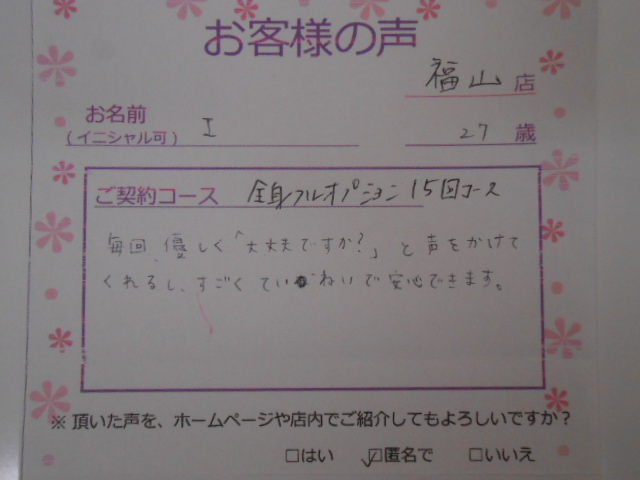 お客様の声
福山 店
お名前
(イニシャル可) I 27 歳
ご契約コース 全身フルオプション 15回コース
毎回、優しく「大丈夫ですか?」と声をかけて
くれるし、すごくていねいで安心できます。
※ 頂いた声を、ホームページや店内でご紹介してもよろしいですか?
□はい ☑匿名で □いいえ